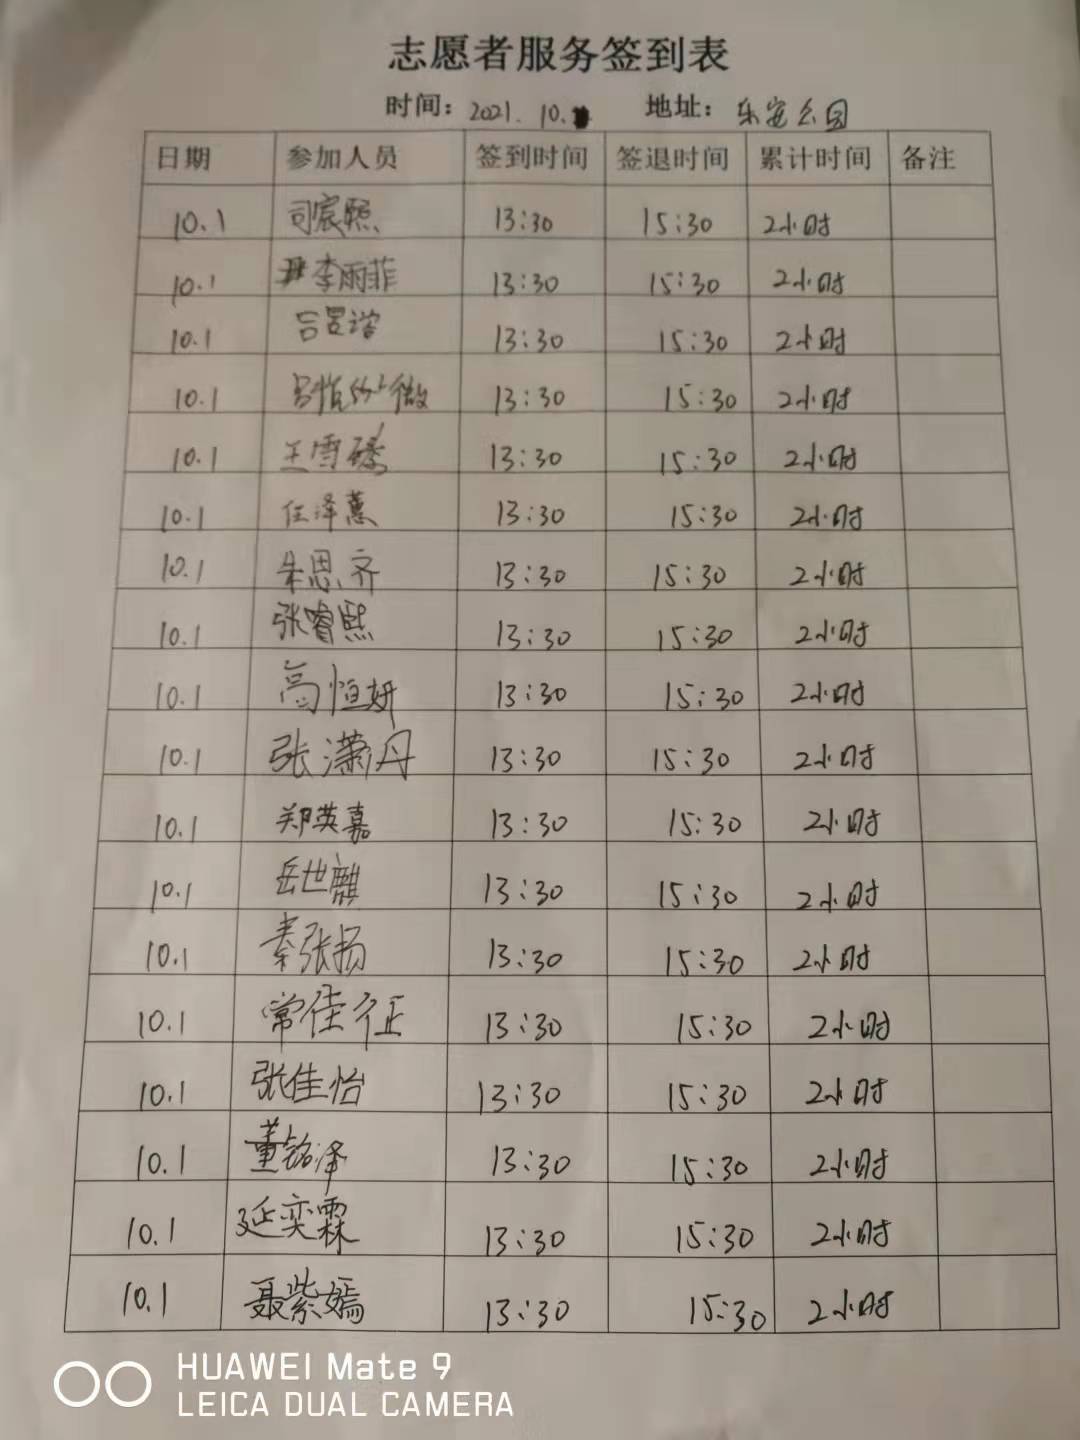 志愿者服务签到表
时间: 2021. 10. 地址: 乐安公园
日期 参加人员 签到时间 签退时间 累计时间 备注
10.1 司宸熙 13:30 15:30 2小时
10.1 李雨菲 13:30 15:30 2小时
10.1 13:30 15:30 2小时
10.1 13:30 15:30 2小时
10.1 王雪 13:30 15:30 2小时
10.1 任泽蕙 13:30 15:30 2小时
10.1 朱思齐 13:30 15:30 2小时
10.1 张睿熙 13:30 15:30 2小时
10.1 高恒妍 13:30 15:30 2小时
10.1 张潇丹 13:30 15:30 2小时
10.1 郑英嘉 13:30 15:30 2小时
10.1 岳世 13:30 15:30 2小时
10.1 秦张扬 13:30 15:30 2小时
10.1 常佳征 13:30 15:30 2小时
10.1 张佳怡 13:30 15:30 2小时
10.1 董铭泽 13:30 15:30 2小时
10.1 延奕霖 13:30 15:30 2小时
10.1 聂紫嫣 13:30 15:30 2小时
HUAWEI Mate 9
LEICA DUAL CAMERA